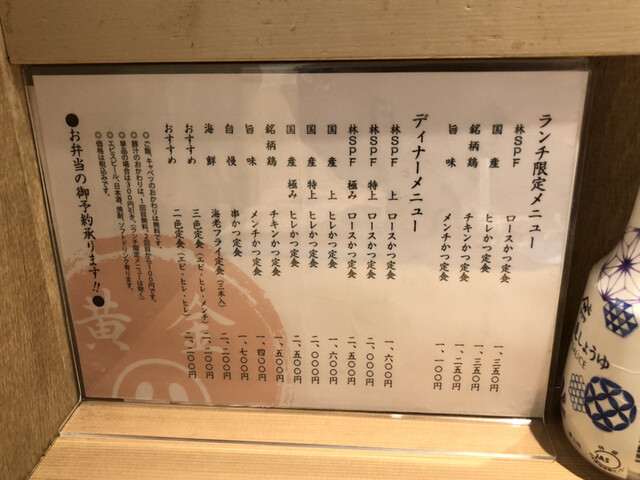 ランチ限定メニュー
林SPF ロースかつ定食 一、三五〇円
国産 ヒレかつ定食 一、三五〇円
銘柄鶏 チキンかつ定食 一、二五〇円
旨味 メンチかつ定食 一、一〇〇円
ディナーメニュー
林SPF 上 ロースかつ定食 一、六〇〇円
林SPF 特上 ロースかつ定食 二、〇〇〇円
林SPF 極み ロースかつ定食 二、五〇〇円
国産 上 ヒレかつ定食 一、六〇〇円
国産 特上 ヒレかつ定食 二、〇〇〇円
国産 極み ヒレかつ定食 二、五〇〇円
銘柄鶏 チキンかつ定食 一、五〇〇円
旨味 メンチかつ定食 一、四〇〇円
自慢 串かつ定食 一、七〇〇円
海鮮 海老フライ定食(三本入) 二、二〇〇円
おすすめ 三色定食(エビ・ヒレ・メンチ)
おすすめ 二色定食(エビ・ヒレ・ヒレ) 二、一〇〇円
◎ご飯、キャベツのおかわりは無料です。
◎豚汁のおかわりは、1回目無料、2回目から100円です。
◎単品の場合は300円引き。(ランチ限定メニューは除く)
◎エビスビール、日本酒、焼酎、ソフトドリンク有ります。
◎価格は税込みです。
●お弁当の御予約承ります!!●
黄金
しょうゆ
JAS